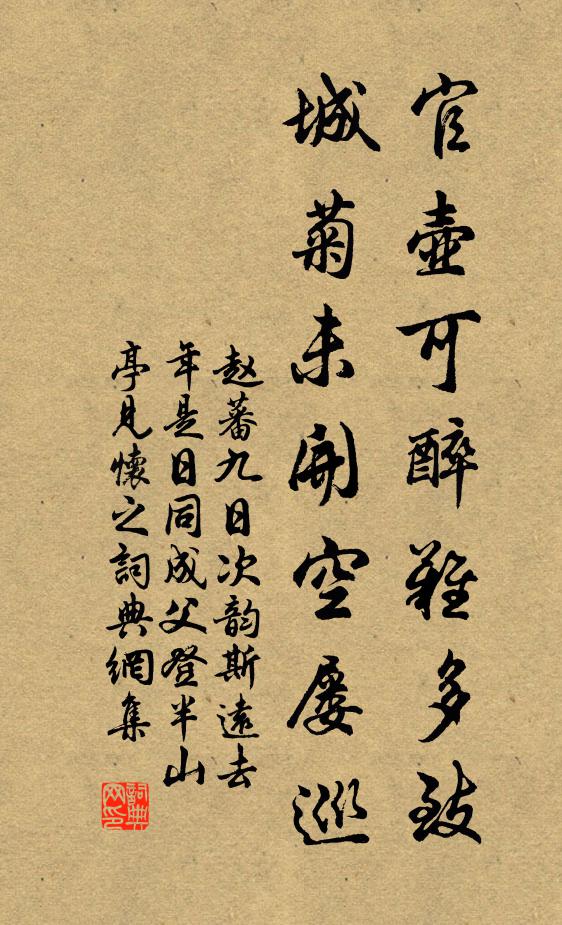 官壺可醉難多致
城菊未開空屡巡
赵蕃九日次韵斯遠去
年是日同成父登半山
亭見懷之詞典網集
詞典
网印